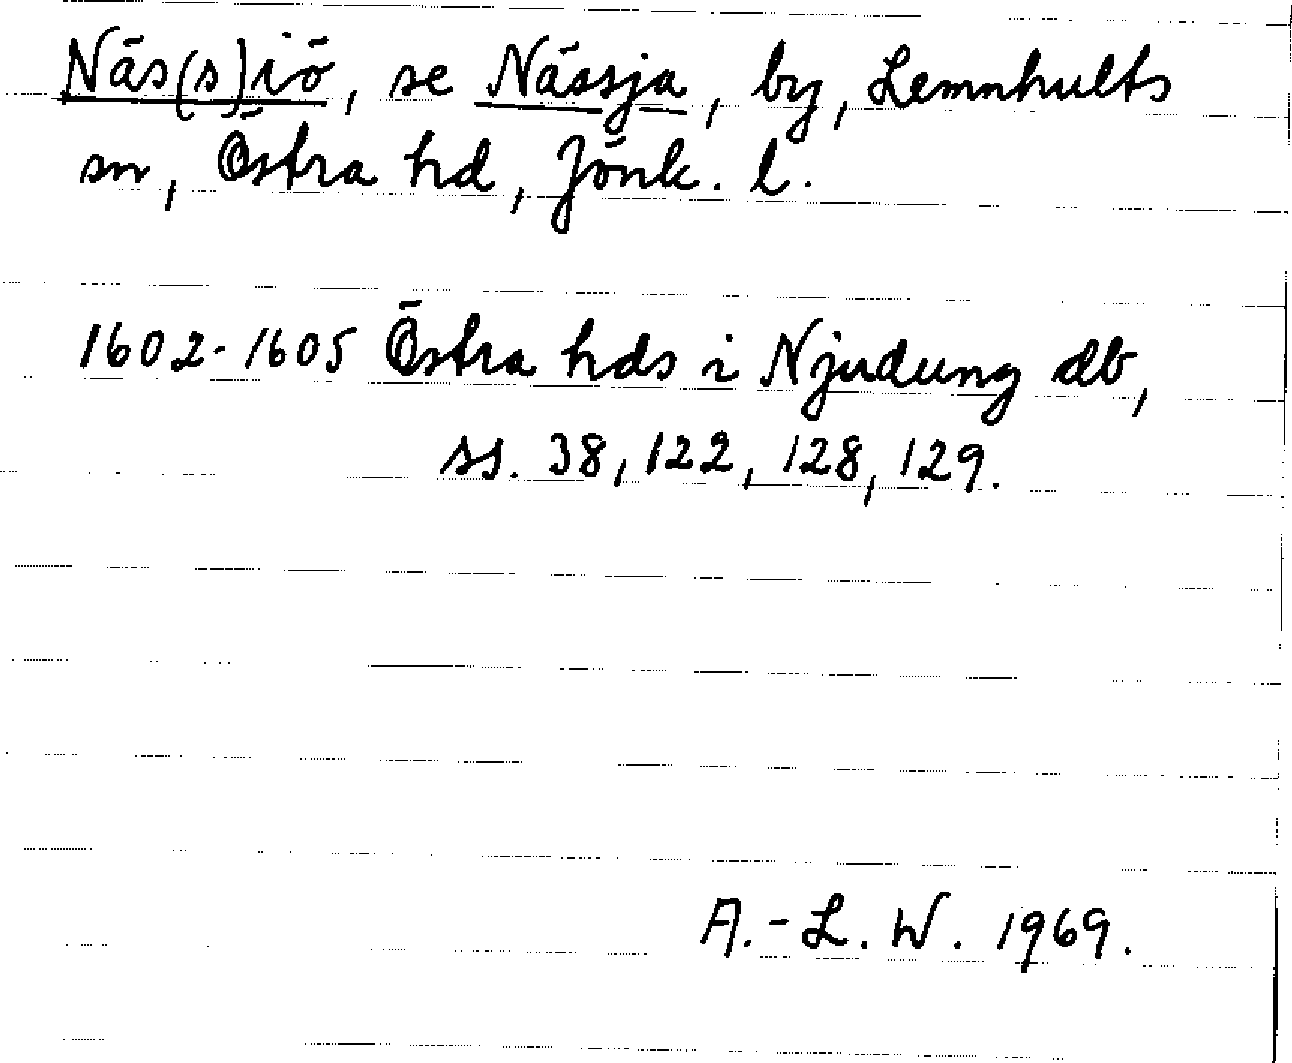 Näs(s)iö, se Nässja, by, Lemnhults
sn, Östra hd, Jönk. l.
1602-1605 Östra hds i Njudung db,
ss. 38, 122, 128, 129.
A.-L. W. 1969.